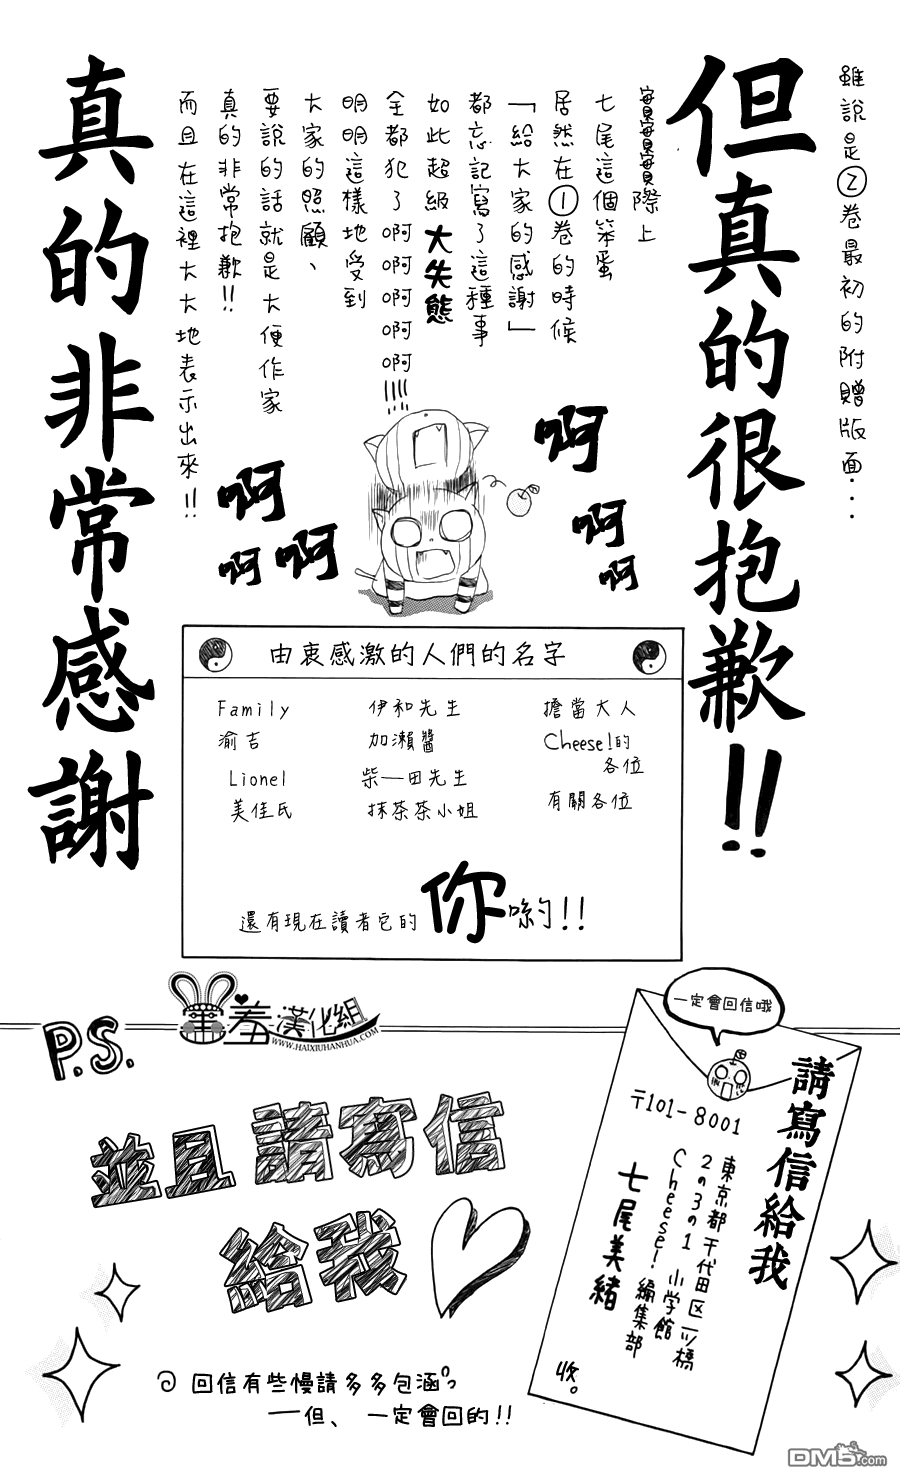 雖說是②卷最初的附贈版面...
但真的很抱歉!!
實實實際上
七尾這個笨蛋
居然在①卷的時候
「給大家的感謝」
都忘記寫了這種事
如此超級大失態
全都犯了啊啊啊啊!!!!
明明這樣地受到
大家的照顧、
要說的話就是大便作家
真的非常抱歉!!
而且在這裡大大地表示出來!!
真的非常感謝
啊
啊
啊
啊
啊
啊
由衷感激的人們的名字
Family 伊和先生 擔當大人
渝吉 加瀨醬 Cheese!的
各位
Lionel 柴一田先生
美佳氏 抹茶茶小姐 有關各位
還有現在讀者它的你喲!!
羞漢化組
WWW.HAIXIUHANHUA.COM
P.S.
並且請寫信
給我
回信有些慢請多多包涵。
——但、一定會回的!!
一定會回信哦
請寫信給我
〒101-8001
東京都千代田区一ツ橋
2の3の1 小学館
Cheese! 編集部
七尾美緒
收。
DM5.com